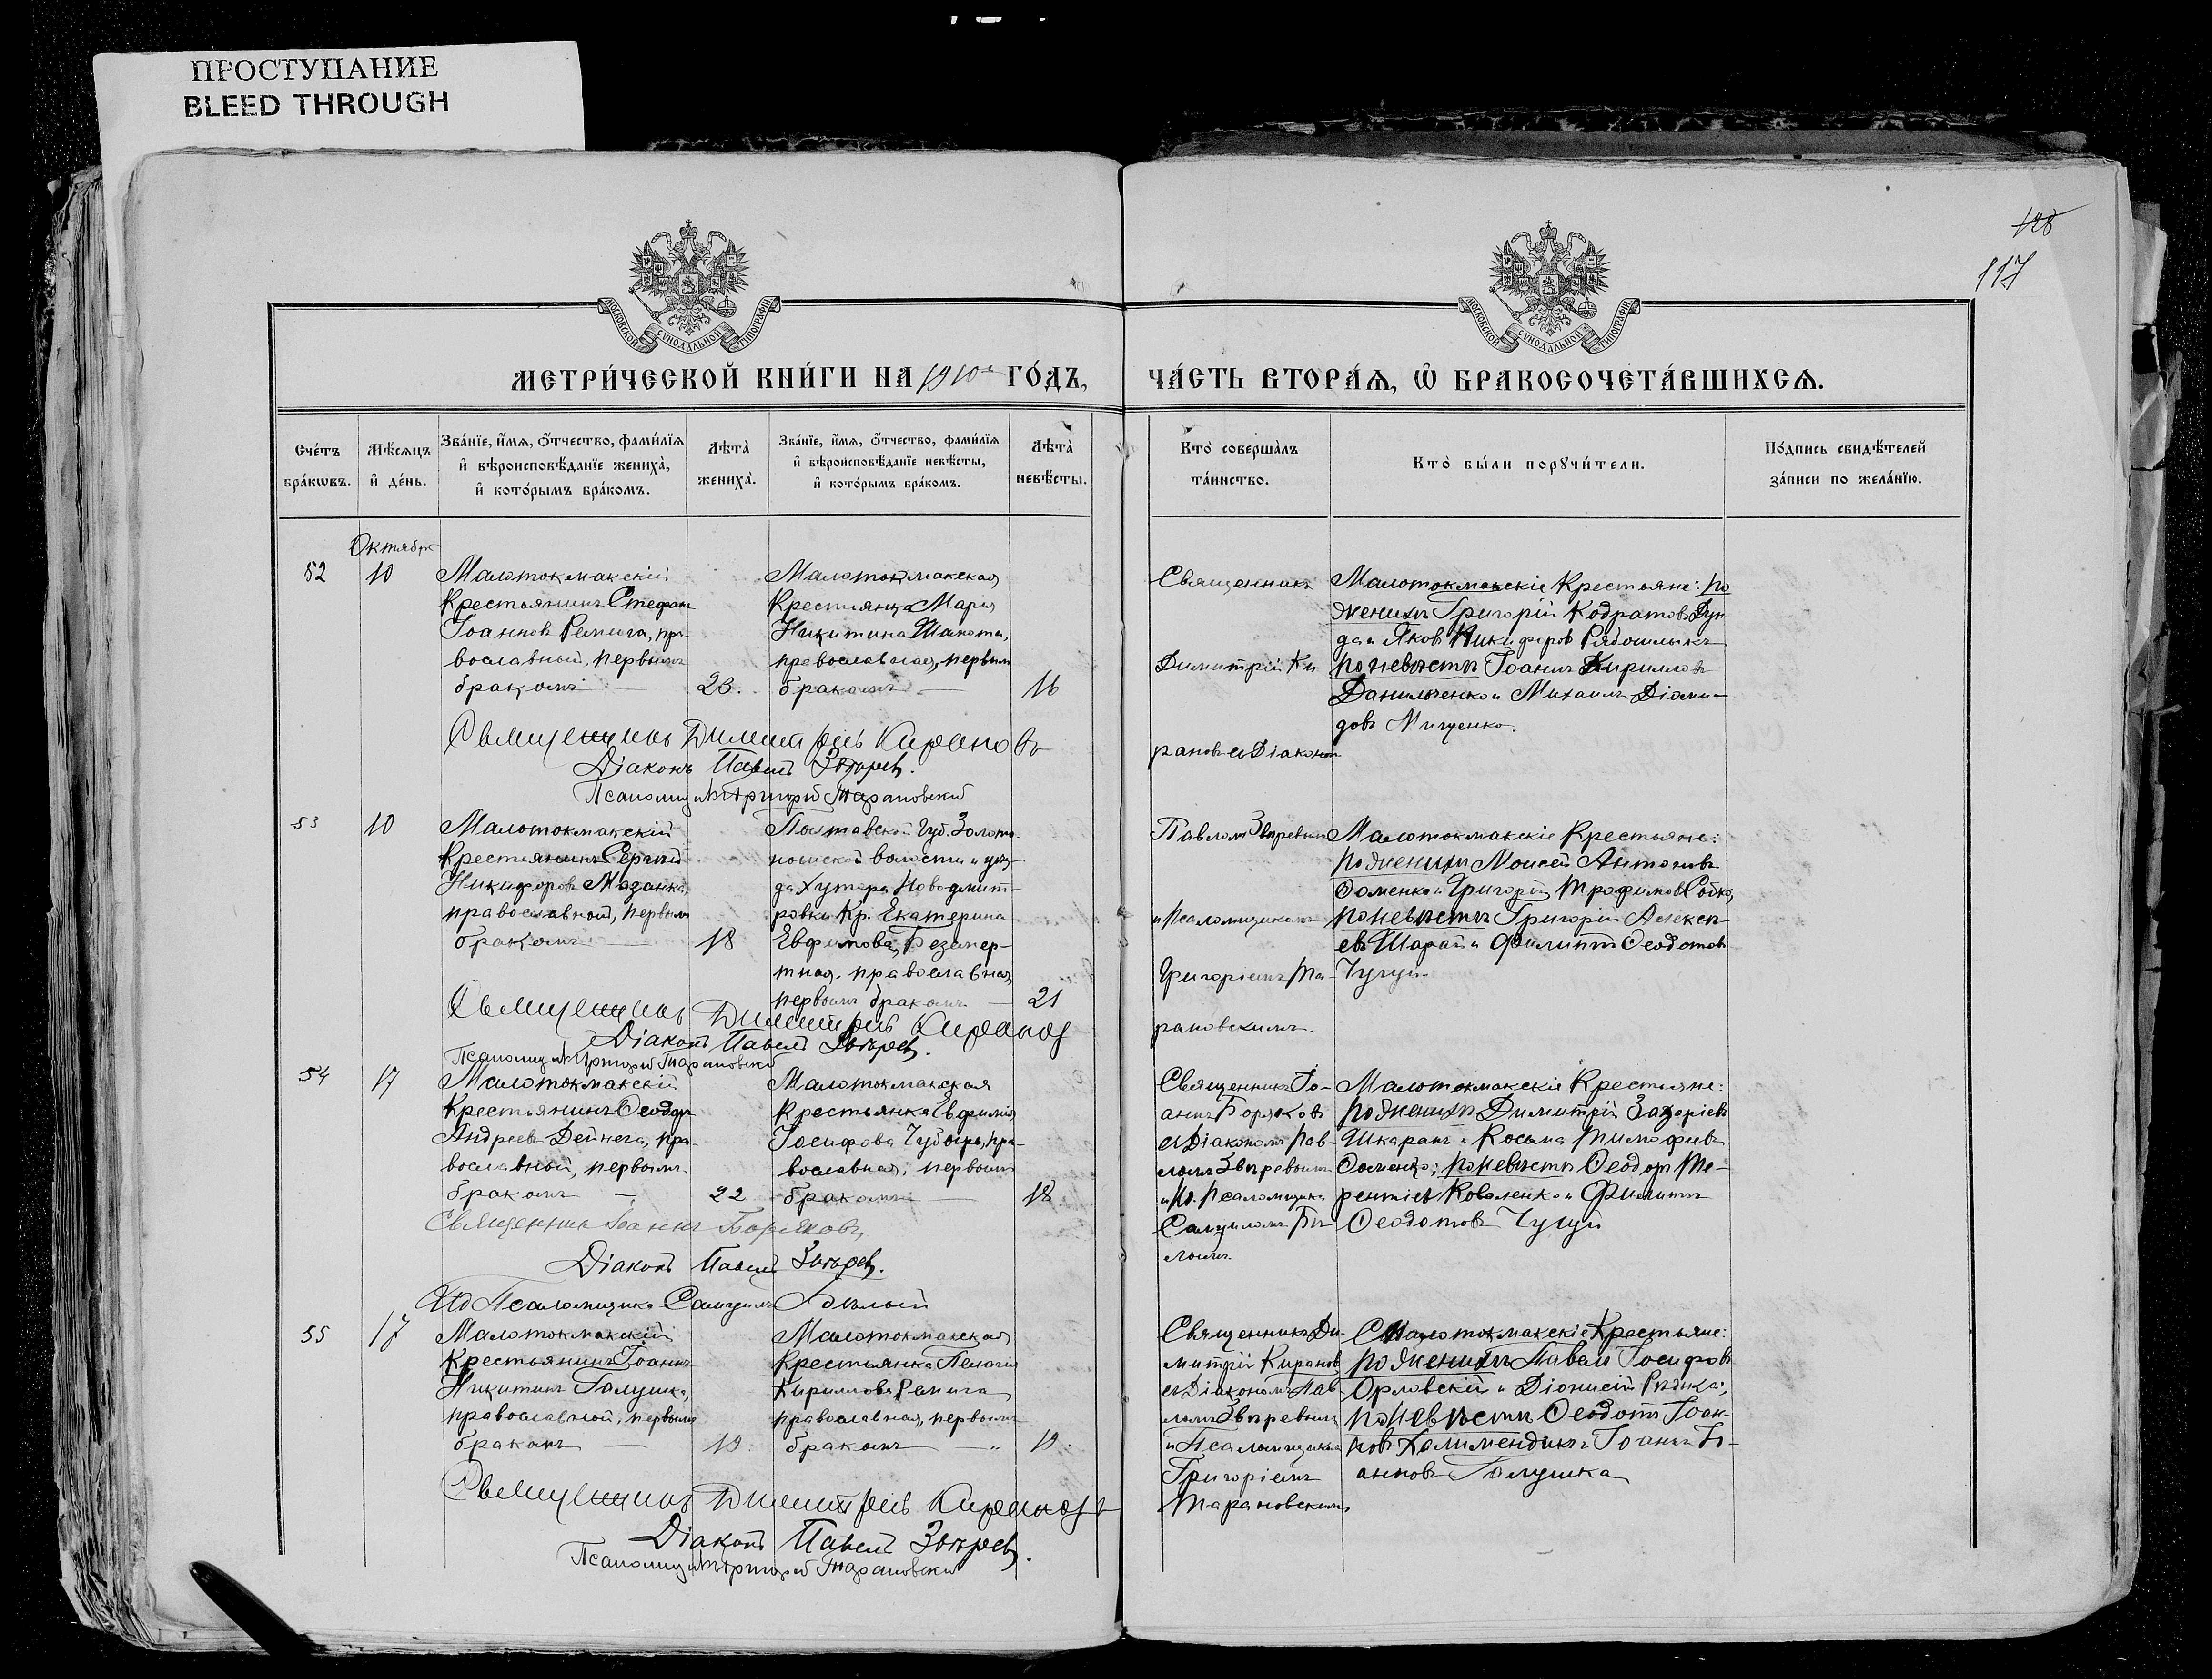 ПРОСТУПАНИЕ
BLEED THROUGH
128
117
МОСКОВСКОЙ СѴНОДАЛЬНОЙ ТИПОГРАФІИ
МОСКОВСКОЙ СѴНОДАЛЬНОЙ ТИПОГРАФІИ
МЕТРИ́ЧЕСКОЙ КНИ́ГИ НА 1910й ГО́ДЪ,
ЧА́СТЬ ВТОРА́Ѧ, Ѽ БРАКОСОЧЕТА́ВШИХСѦ.
Сче́тъ
бра́кѡвъ.
Мѣ́сѧцъ
и҆ де́нь.
Зва́нїе, и҆́мѧ, ѻ҆́тчество, фами́лїѧ
и҆ вѣроисповѣ́данїе жениха̀,
и҆ кото́рымъ бра́комъ.
Лѣ́та̀
жениха̀.
Зва́нїе, и҆́мѧ, ѻ҆́тчество, фами́лїѧ
и҆ вѣроисповѣ́данїе невѣ́сты,
и҆ кото́рымъ бра́комъ.
Лѣ́та̀
невѣ́сты.
Кто̀ соверша̀лъ
та́инство.
Кто̀ бы́ли порꙋчи́тели.
По́дпись свидѣ́телей
за́писи по жела́нїю.
Октября
52
10
Малотокмакскій
Крестьянинъ Стефанъ
Іоанновъ Ремига, пра-
вославный, первымъ
бракомъ —
23.
Малотокмакская
Крестьянка Марія
Никитина Шахота,
православная, первымъ
бракомъ —
16
Священникъ
Димитрій Ки
рановъ съ Діакономъ
Малотокмакскіе Крестьяне: по
женихѣ Григорій Кодратовъ Дун
да и Яковъ Никифоровъ Рябошлыкъ
по невѣстѣ Іоаннъ Кирилловъ
Данильченко и Михаилъ Діоми-
довъ Мищенко.
Священникъ Димитрій Кирановъ
Діаконъ Павелъ Звѣревъ.
Псаломщикъ Григорій Тарановскій
53
10
Малотокмакскій
Крестьянинъ Сергій
Никифоровъ Мазанка,
православный, первымъ
бракомъ —
18
Полтавской Губ. Золото-
ношской волости и уѣз-
да Хутора Новодмит-
ровки Кр. Екатерина
Евфимова, Безпер-
тная, православная,
первымъ бракомъ —
21
Павломъ Звѣревымъ
и Псаломщикомъ
Григоріемъ Та-
рановскимъ.
Малотокмакскіе Крестьяне:
по женихѣ Моисей Антоновъ
Ѳоменко и Григорій Трофимовъ Собко,
по невѣстѣ Григорій Алексѣ-
евъ Шарай и Филиппъ Ѳеодотовъ
Чугуй.
Священникъ Димитрій Кирановъ
Діаконъ Павелъ Звѣревъ.
Псаломщикъ Григорій Тарановскій
54
17
Малотокмакскій
Крестьянинъ Ѳеодоръ
Андреевъ Дейнега, пра-
вославный, первымъ
бракомъ —
22
Малотокмакская
Крестьянка Евфимія
Іосифова Чубарь, пра-
вославная, первымъ
бракомъ —
18
Священникъ Іо-
аннъ Боряковъ
съ Діакономъ Пав-
ломъ Звѣревымъ
и и. д. Псаломщика
Самуиломъ Бѣ-
лымъ.
Малотокмакскіе Крестьяне:
по женихѣ Димитрій Захаріевъ
Шкарапъ и Косьма Тимофѣевъ
Ѳоменко; по невѣстѣ Ѳеодоръ Те-
рентіевъ Коваленко и Филиппъ
Ѳеодотовъ Чугуй
Священникъ Іоаннъ Боряковъ
Діаконъ Павелъ Звѣревъ.
Ид Псаломщика Самуилъ Бѣлый
55
17
Малотокмакскій
Крестьянинъ Іоаннъ
Никитинъ Галушка,
православный, первымъ
бракомъ —
19.
Малотокмакская
Крестьянка Пелагія
Кириллова Ремига,
православная, первымъ
бракомъ —
19.
Священникъ Ди-
митрій Кирановъ
съ Діакономъ Пав-
ломъ Звѣревымъ
и Псаломщикомъ
Григоріемъ
Тарановскимъ.
Малотокмакскіе Крестьяне:
по женихѣ Павелъ Іосифовъ
Орловскій и Діонисій Рѣдька;
по невѣстѣ Ѳеодотъ Іоан-
новъ Халимендикъ и Іоаннъ Іо-
анновъ Галушка
Священникъ Димитрій Кирановъ
Діаконъ Павелъ Звѣревъ.
Псаломщикъ Григорій Тарановскій